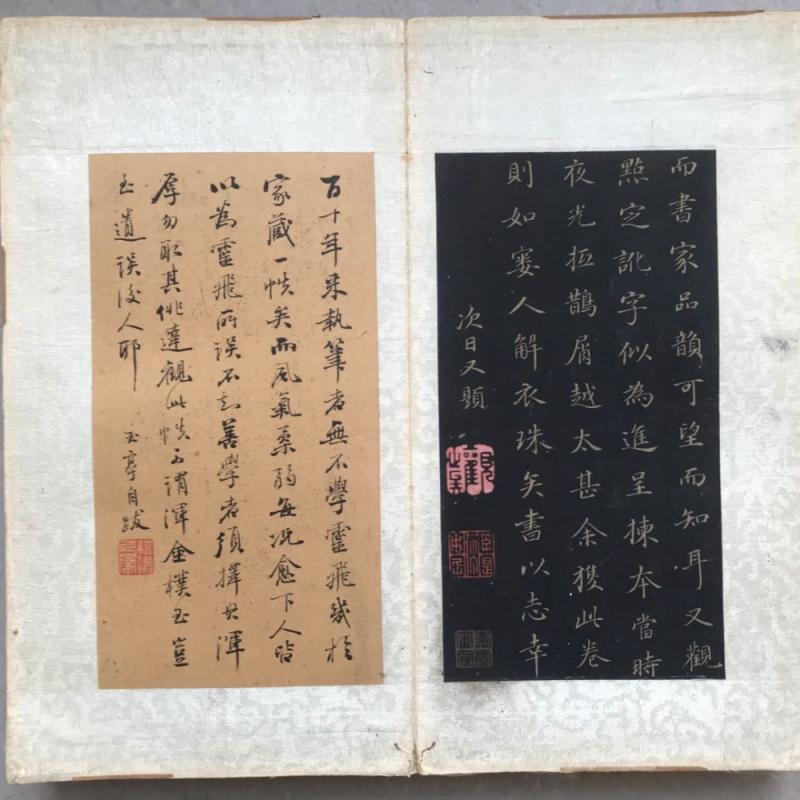 而書家品韻可望而知耳又觀
點定訛字似為進呈揀本當時
夜光抵鵲屑越太甚余獲此卷
則如窶人解衣珠矣書以志幸
次日又題
百十年來執筆者無不學靈飛幾於
家藏一帙矣而風氣柔弱每況愈下人皆
以為靈飛所誤不知善學者須擇其渾
厚勿取其佻達觀此帙可謂渾金樸玉豈
遺誤後人耶
玉亭自跋